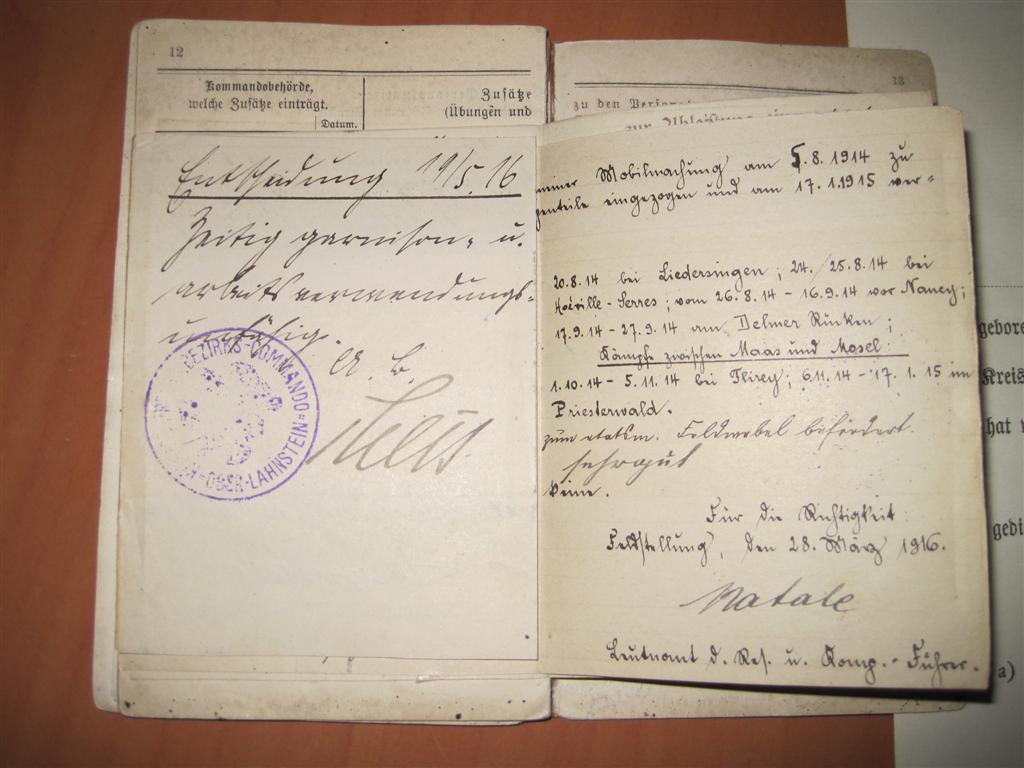 12
Kommandobehörde,
welche Zusätze einträgt.
Datum.
Zusätze
(Übungen und
Entscheidung 19/5.16
Zeitig garnison- u.
arbeitsverwendungs-
unfähig.
A. B.
BEZIRKS-COMMANDO
OBER-LAHNSTEIN
13
zu den Personal
zur Ableistung
meiner Mobilmachung am 5.8.1914 zu
genteile eingezogen und am 17.1.1915 ver-
20.8.14 bei Liedersingen; 24./25.8.14 bei
Hoéville-Serres; vom 26.8.14 - 16.9.14 vor Nancy;
17.9.14 - 27.9.14 am Delmer Rücken;
Kämpfe zwischen Maas und Mosel:
1.10.14 - 5.11.14 bei Flirey; 6.11.14 - 17.1.15 im
Priesterwald.
zum etatsm. Feldwebel befördert.
sehr gut
keine.
Für die Richtigkeit
Feldstellung, den 28. März 1916.
Natale
Leutnant d. Res. u. Komp.-Führer.
gebore
Kreis
hat
gedi
a)